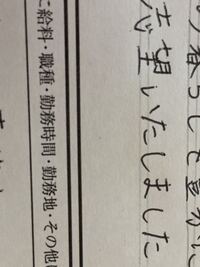 暮らしを豊かに
志望いたしました
に給料・職種・勤務時間・勤務地・その他